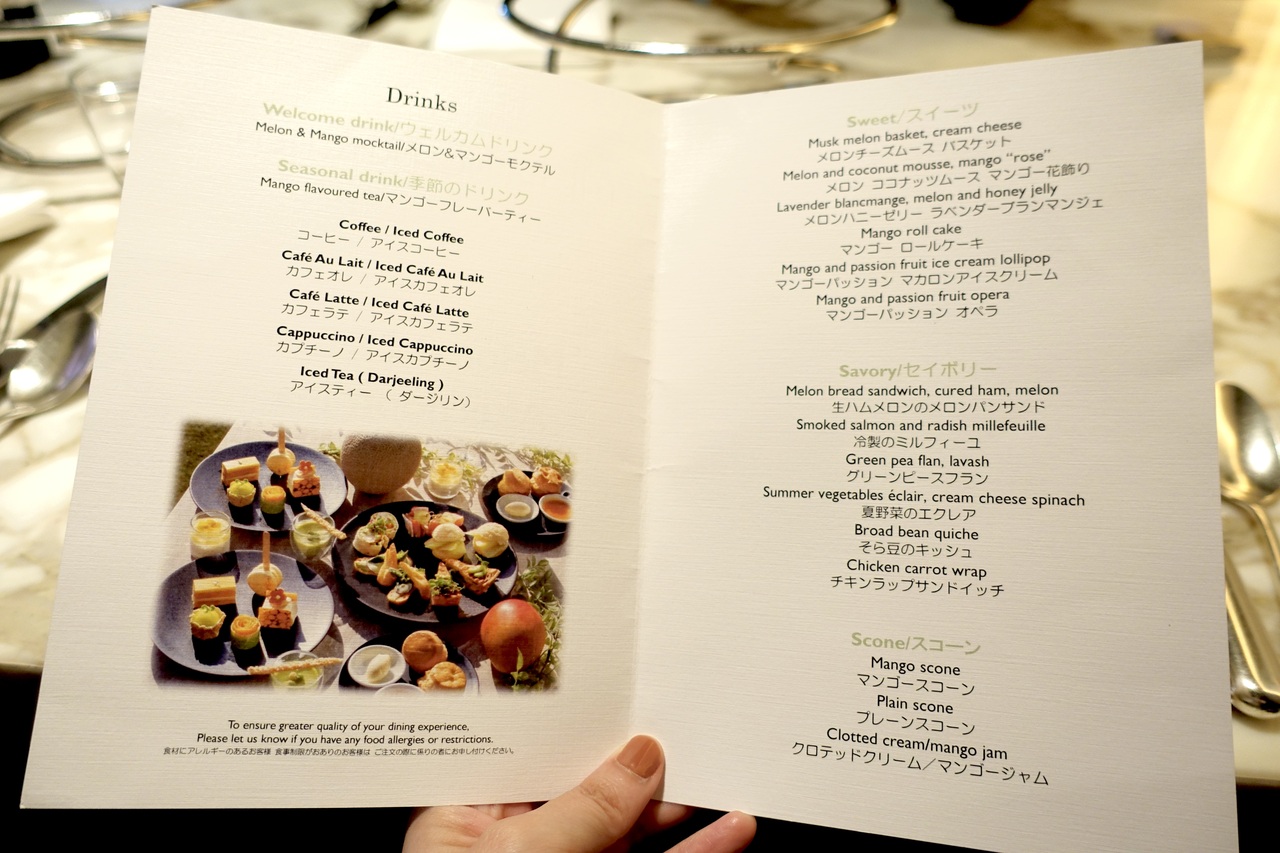 Drinks
Welcome drink/ウェルカムドリンク
Melon & Mango mocktail/メロン&マンゴーモクテル
Seasonal drink/季節のドリンク
Mango flavoured tea/マンゴーフレーバーティー
Coffee / Iced Coffee
コーヒー / アイスコーヒー
Café Au Lait / Iced Café Au Lait
カフェオレ / アイスカフェオレ
Café Latte / Iced Café Latte
カフェラテ / アイスカフェラテ
Cappuccino / Iced Cappuccino
カプチーノ / アイスカプチーノ
Iced Tea ( Darjeeling )
アイスティー ( ダージリン)
To ensure greater quality of your dining experience,
Please let us know if you have any food allergies or restrictions.
食材にアレルギーのあるお客様 食事制限がおありのお客様は ご注文の際に係りの者にお申し付けください。
Sweet/スイーツ
Musk melon basket, cream cheese
メロンチーズムース バスケット
Melon and coconut mousse, mango “rose”
メロン ココナッツムース マンゴー花飾り
Lavender blancmange, melon and honey jelly
メロンハニーゼリー ラベンダーブランマンジェ
Mango roll cake
マンゴー ロールケーキ
Mango and passion fruit ice cream lollipop
マンゴーパッション マカロンアイスクリーム
Mango and passion fruit opera
マンゴーパッション オペラ
Savory/セイボリー
Melon bread sandwich, cured ham, melon
生ハムメロンのメロンパンサンド
Smoked salmon and radish millefeuille
冷製のミルフィーユ
Green pea flan, lavash
グリーンピースフラン
Summer vegetables éclair, cream cheese spinach
夏野菜のエクレア
Broad bean quiche
そら豆のキッシュ
Chicken carrot wrap
チキンラップサンドイッチ
Scone/スコーン
Mango scone
マンゴースコーン
Plain scone
プレーンスコーン
Clotted cream/mango jam
クロテッドクリーム／マンゴージャム